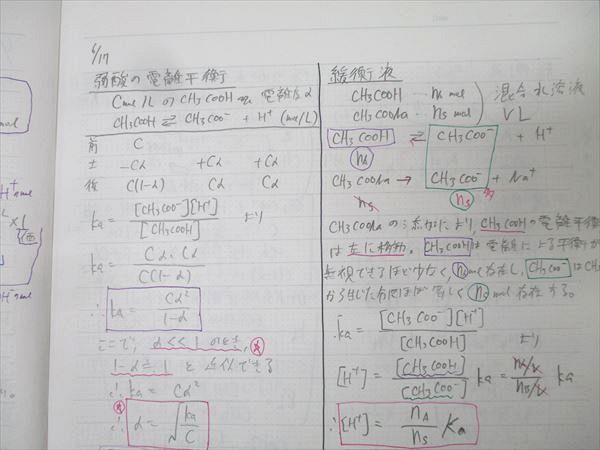 6/17
弱酸の電離平衡
C mol/L の CH3COOH aq 電離度 α
CH3COOH ⇄ CH3COO⁻ + H⁺ (mol/L)
前 C
± -Cα +Cα +Cα
後 C(1-α) Cα Cα
ka = [CH3COO⁻][H⁺] / [CH3COOH] より
ka = Cα・Cα / C(1-α)
∴ ka = Cα² / 1-α
ここで, α << 1 のとき,
1-α ≒ 1 と近似できる
∴ ka = Cα²
∴ α = √(ka/C)
緩衝液
CH3COOH … nA mol
CH3COONa … ns mol
混合水溶液
V L
CH3COOH ⇄ CH3COO⁻ + H⁺
nA
CH3COONa → CH3COO⁻ + Na⁺
ns ns
CH3COONa の添加により, CH3COOH の電離平衡
は左に移動。CH3COOH は電離による平衡が
無視できるほど少なく nA mol 存在し, CH3COO⁻ は CH3
から生じた分とほぼ等しく ns mol 存在する。
∴ ka = [CH3COO⁻][H⁺] / [CH3COOH] より
[H⁺] = [CH3COOH] / [CH3COO⁻] ka = nA/V / ns/V ka
∴ [H⁺] = nA / ns Ka